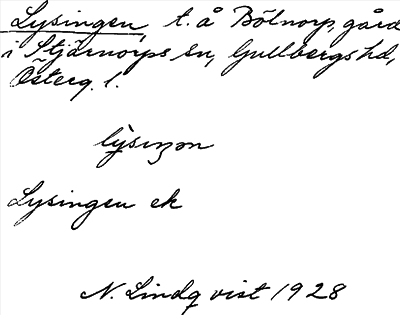 Lysingen, t. å Bölnorp, gård
i Stjärnorps sn, Gullbergs hd,
Österg. l.
lỳsıŋən
Lysingen ek
N. Lindqvist 1928